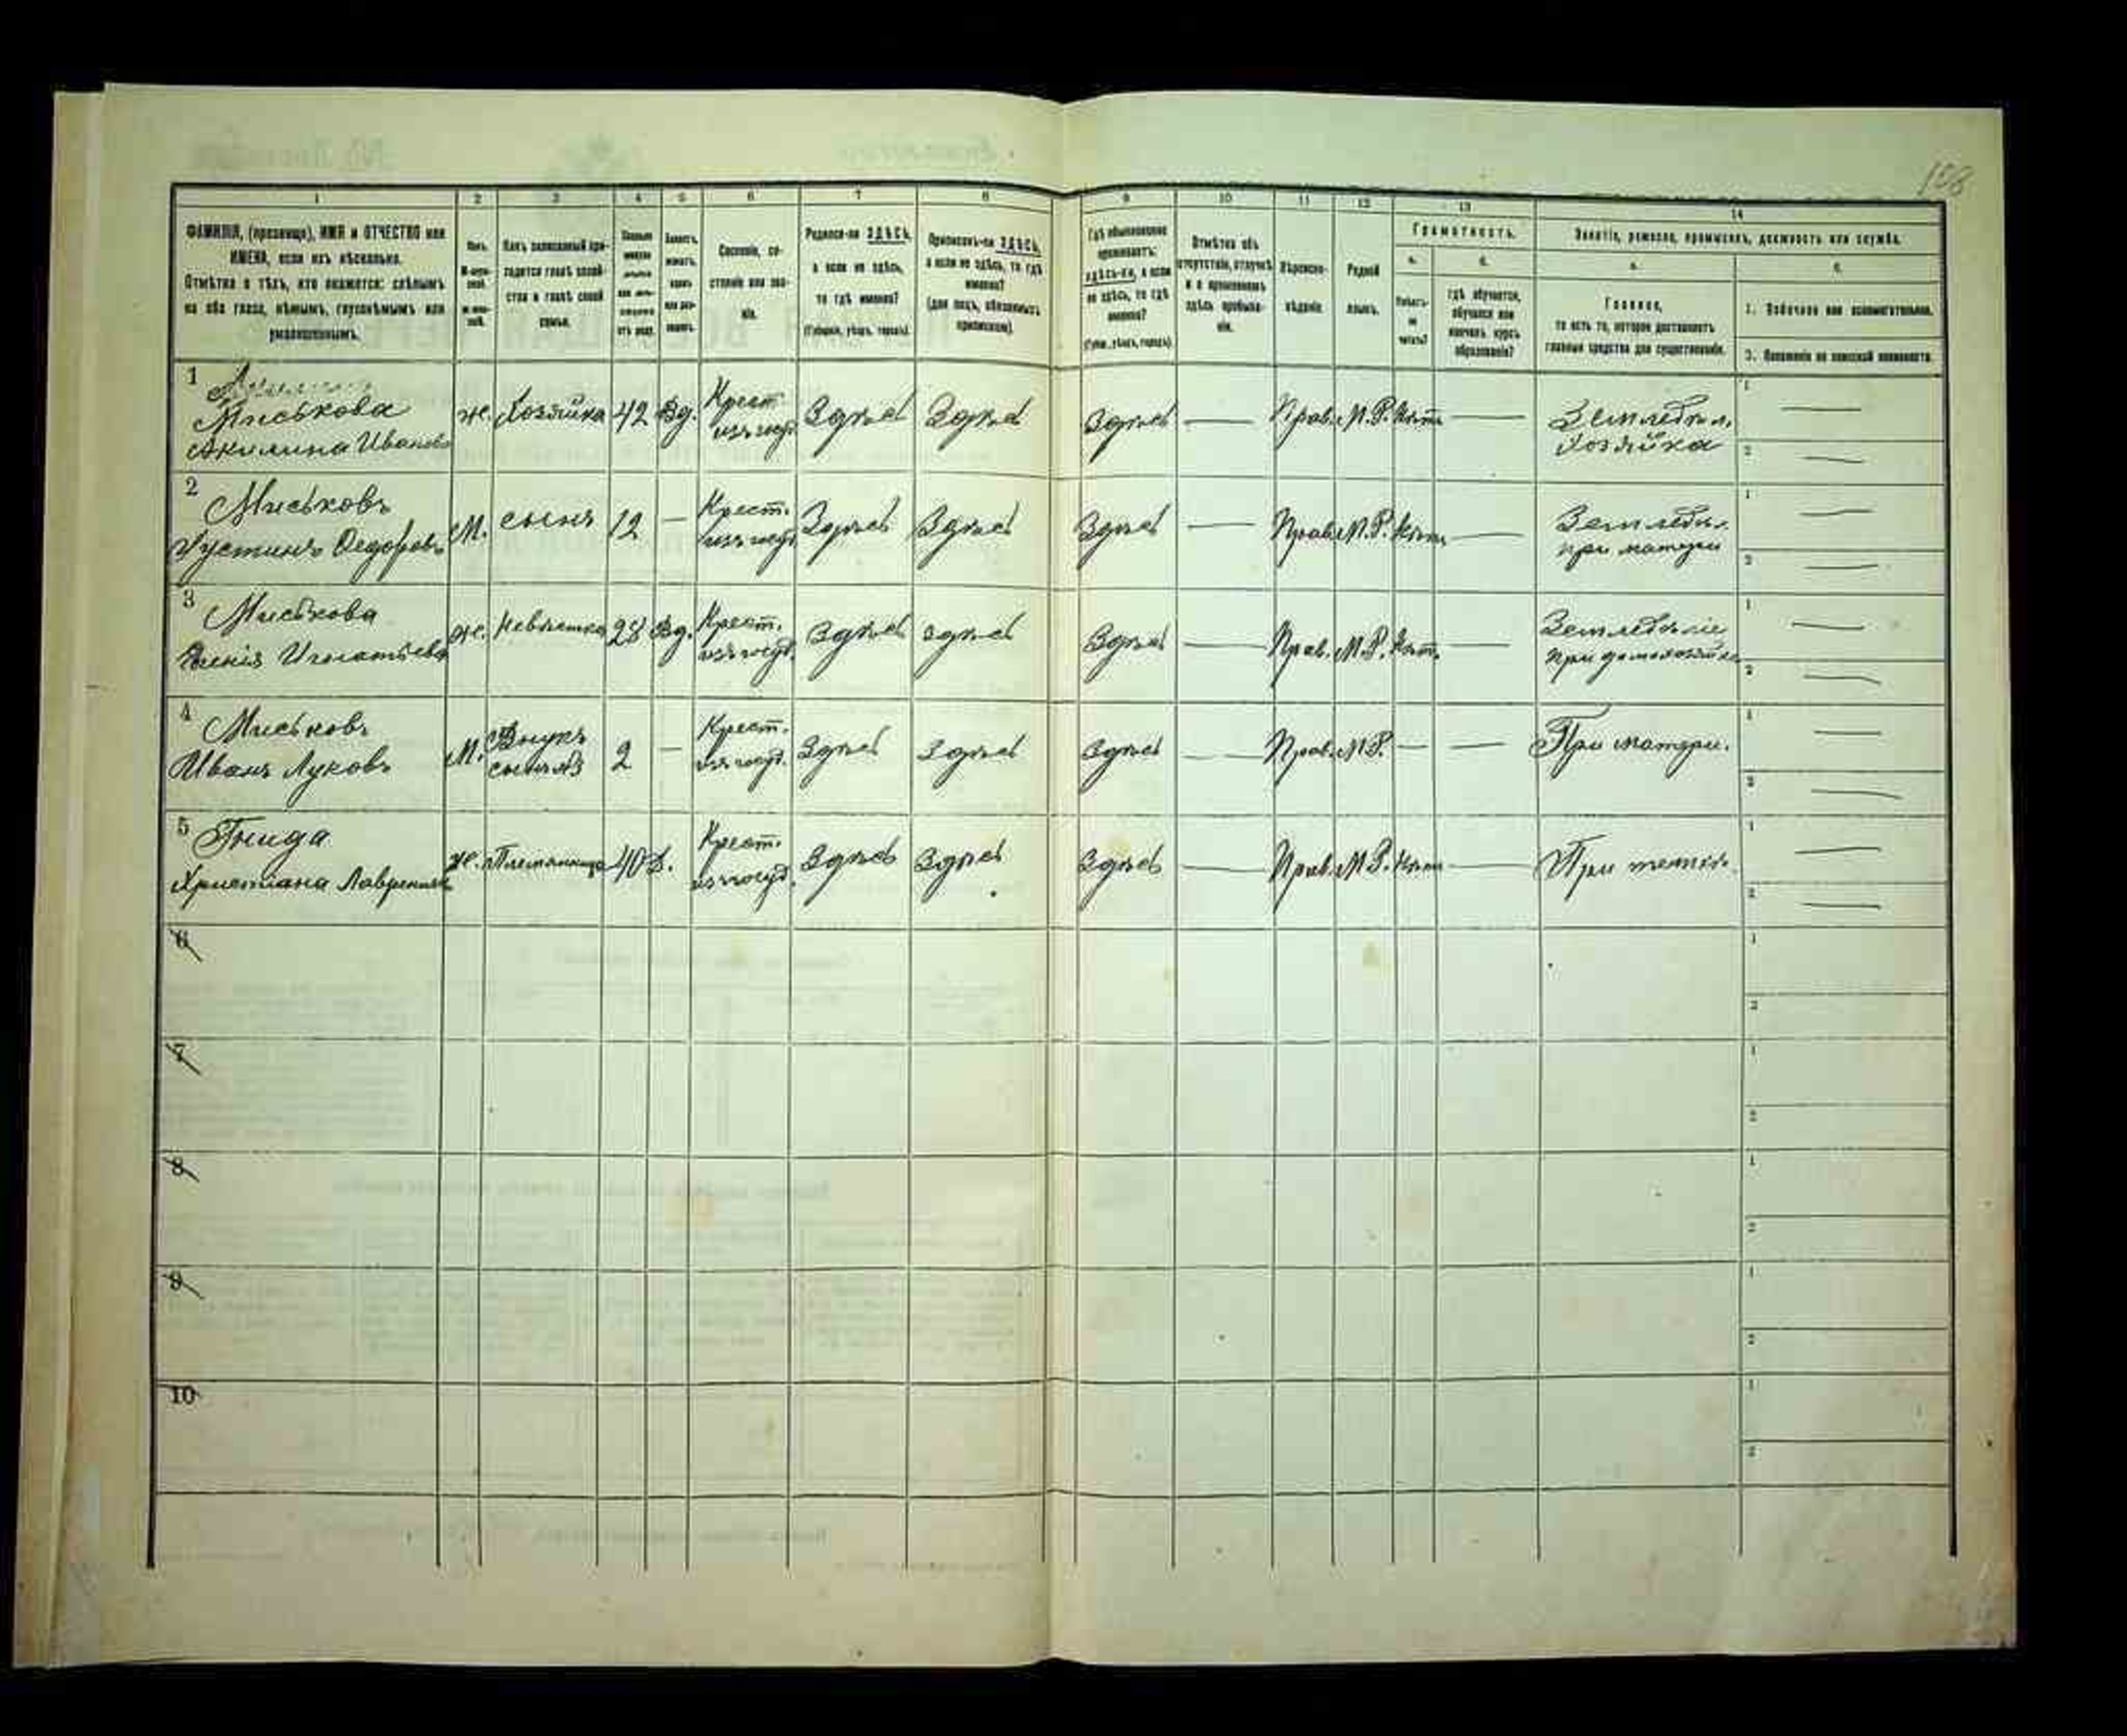 108
1 2 3 4 5 6 7 8 9 10 11 12 13 14
ФАМИЛІЯ, (прозвище), ИМЯ и ОТЧЕСТВО или
ИМЕНА, если ихъ нѣсколько.
Отмѣтка о тѣхъ, кто окажется: слѣпымъ
на оба глаза, нѣмымъ, глухонѣмымъ или
умалишеннымъ.
Полъ.
Какъ записанный при-
ходится главѣ хозяй-
ства и главѣ своей
семьи.
Сословіе, со-
стояніе или зва-
ніе.
Родился-ли ЗДѢСЬ,
а если не здѣсь,
то гдѣ именно?
(Губернія, уѣздъ, городъ).
Приписанъ-ли ЗДѢСЬ,
а если не здѣсь, то гдѣ
именно?
(для лицъ, обязанныхъ
припискою).
Гдѣ обыкновенно
проживаетъ:
здѣсь-ли, а если
не здѣсь, то гдѣ
именно?
(Губ., уѣздъ, городъ).
Отмѣтка объ
отсутствіи, отлучкѣ
и о временномъ
здѣсь пребыва-
ніи.
Вѣроиспо-
вѣданіе.
Родной
языкъ.
Грамотность.
а.
Умѣетъ-
ли
читать?
б.
гдѣ обучается,
обучался или
кончилъ курсъ
образованія?
Занятіе, ремесло, промыселъ, должность или служба.
а.
Главное,
то есть то, которое доставляетъ
главныя средства для существованія.
б.
1. Побочное или вспомогательное.
2. Положеніе по воинской повинности.
1
Миськова
Акилина Иванова
ж. Хозяйка 42 Вд. Крест. изъ госуд. Здѣсь Здѣсь Здѣсь — Прав. М.Р. Нѣтъ — Земледѣл. хозяйка
1 —
2 —
2 Миськовъ
Устинъ Федоровъ
М. сынъ 12 — Крест. изъ госуд. Здѣсь Здѣсь Здѣсь — Прав. М.Р. Нѣтъ — Земледѣл. при матери
1 —
2 —
3 Миськова
Игнатьева
ж. Невѣстка 28 Вд. Крест. изъ госуд. Здѣсь здѣсь Здѣсь — Прав. М.Р. Нѣтъ. — Земледѣліе при домохозяйкѣ
1 —
2 —
4 Миськовъ
Иванъ Луковъ
М. Внукъ 2 — Крест. изъ госуд. Здѣсь Здѣсь Здѣсь — Прав. М.Р. — — При матери.
1 —
2 —
5 Гнида
Христіана
ж. Племянница 40 Д. Крест. изъ госуд. Здѣсь Здѣсь Здѣсь — Прав. М.Р. Нѣтъ — При теткѣ.
1 —
2 —
6
1
2
7
1
2
8
1
2
9
1
2
10
1
2